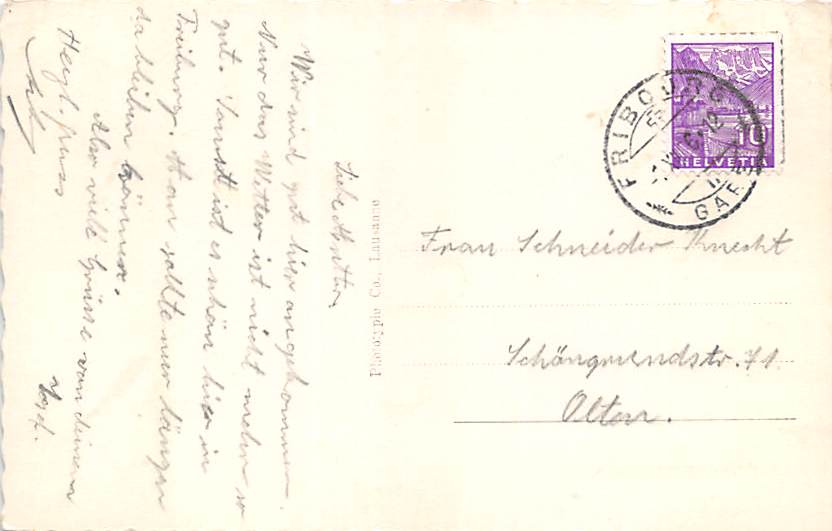 Liebe Mutter,
Wir sind gut hier angekommen.
Nur das Wetter ist nicht mehr so
gut. Sonst ist es schön hier in
Freiburg. Man sollte nur länger
da bleiben können.
Also viele Grüsse von deinem
Josef.
Herzl. Gruss
Photographie Co., Lausanne
FRIBOURG
GARE
10
HELVETIA
Frau Schneider Knecht
Schöngrundstr. 71
Olten.